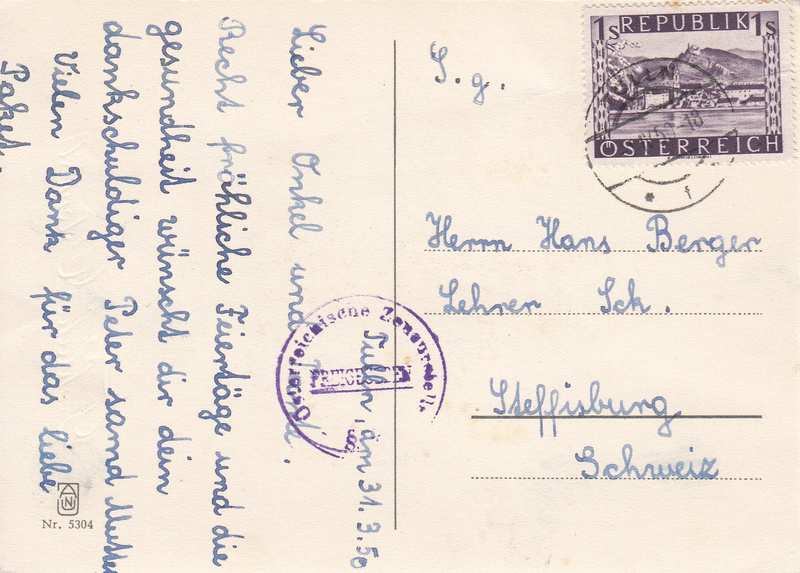 Tulln, am 31.3.50
Lieber Onkel und
Recht fröhliche Feiertäge und die
gesundheit wünscht dir dein
dankschuldiger Peter samd Mutter
Vielen Dank für das liebe
Paket.
S. g.
Herrn Hans Berger
Lehrer Sck.
Steffisburg
Schweiz
1s REPUBLIK 1s
ÖSTERREICH
TULLN
Österreichische Zensurstelle
Nr. 5304